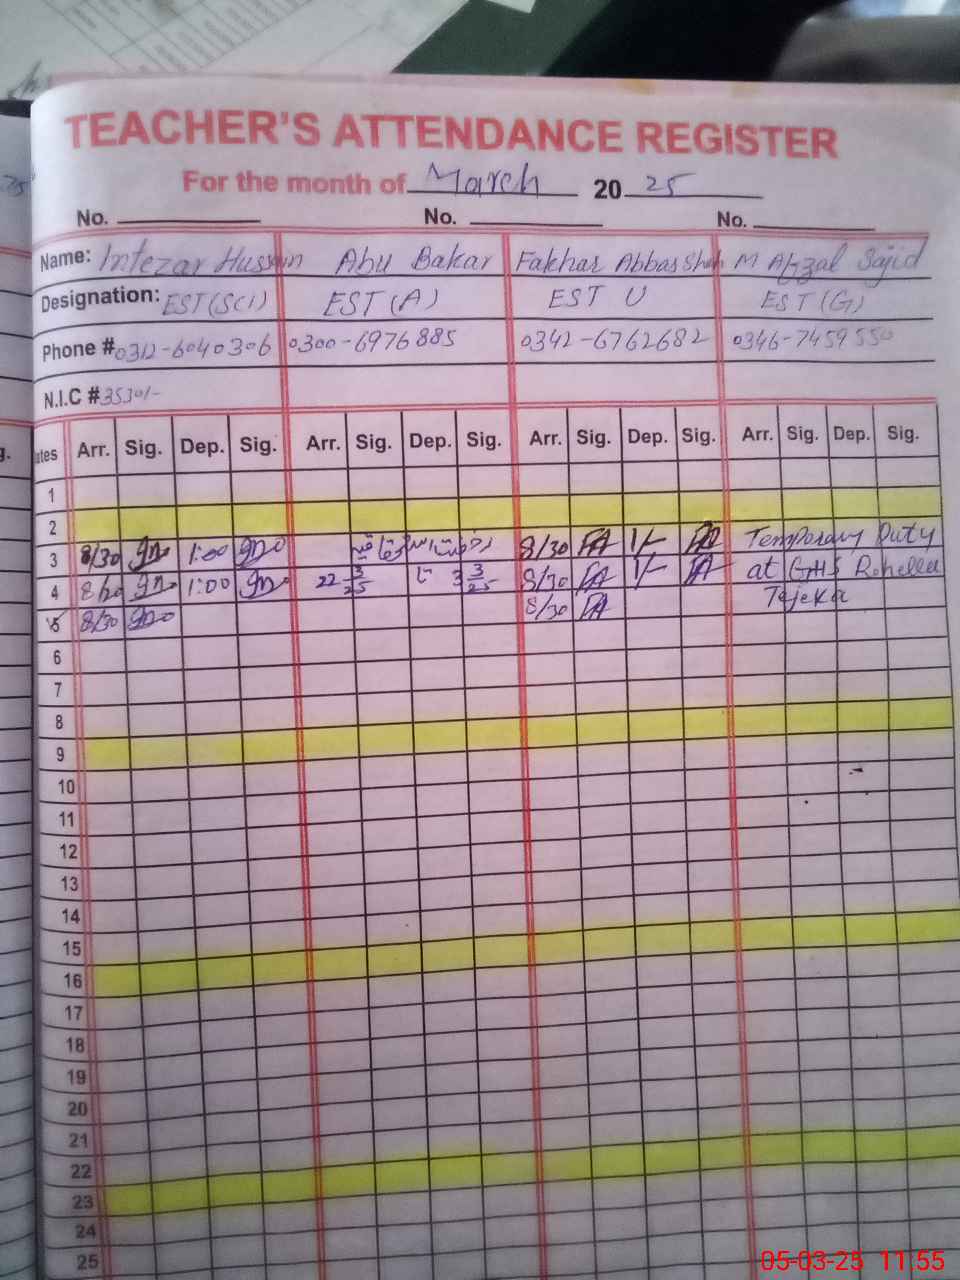 TEACHER'S ATTENDANCE REGISTER
For the month of March 2025
No. No. No.
Name: Intezar Hussain Abu Bakar Fakhar Abbas Shah M Afzal Sajid
Designation: EST(SCI) EST(A) EST U EST(G)
Phone # 0312-6040306 0300-6976885 0342-6762682 0346-7459550
N.I.C # 35301-
Arr. Sig. Dep. Sig. Arr. Sig. Dep. Sig. Arr. Sig. Dep. Sig. Arr. Sig. Dep. Sig.
1
2
3 8/30 1:00 رخصت 8/30 FA 1/- Temporary Duty
4 1:00 22 3/25 تا 3 3/25 8/30 FA 1/- FA at GHS Rohella
5 8/30 8/30 FA Tejeka
6
7
8
9
10
11
12
13
14
15
16
17
18
19
20
21
22
23
24
25
05-03-25 11:55